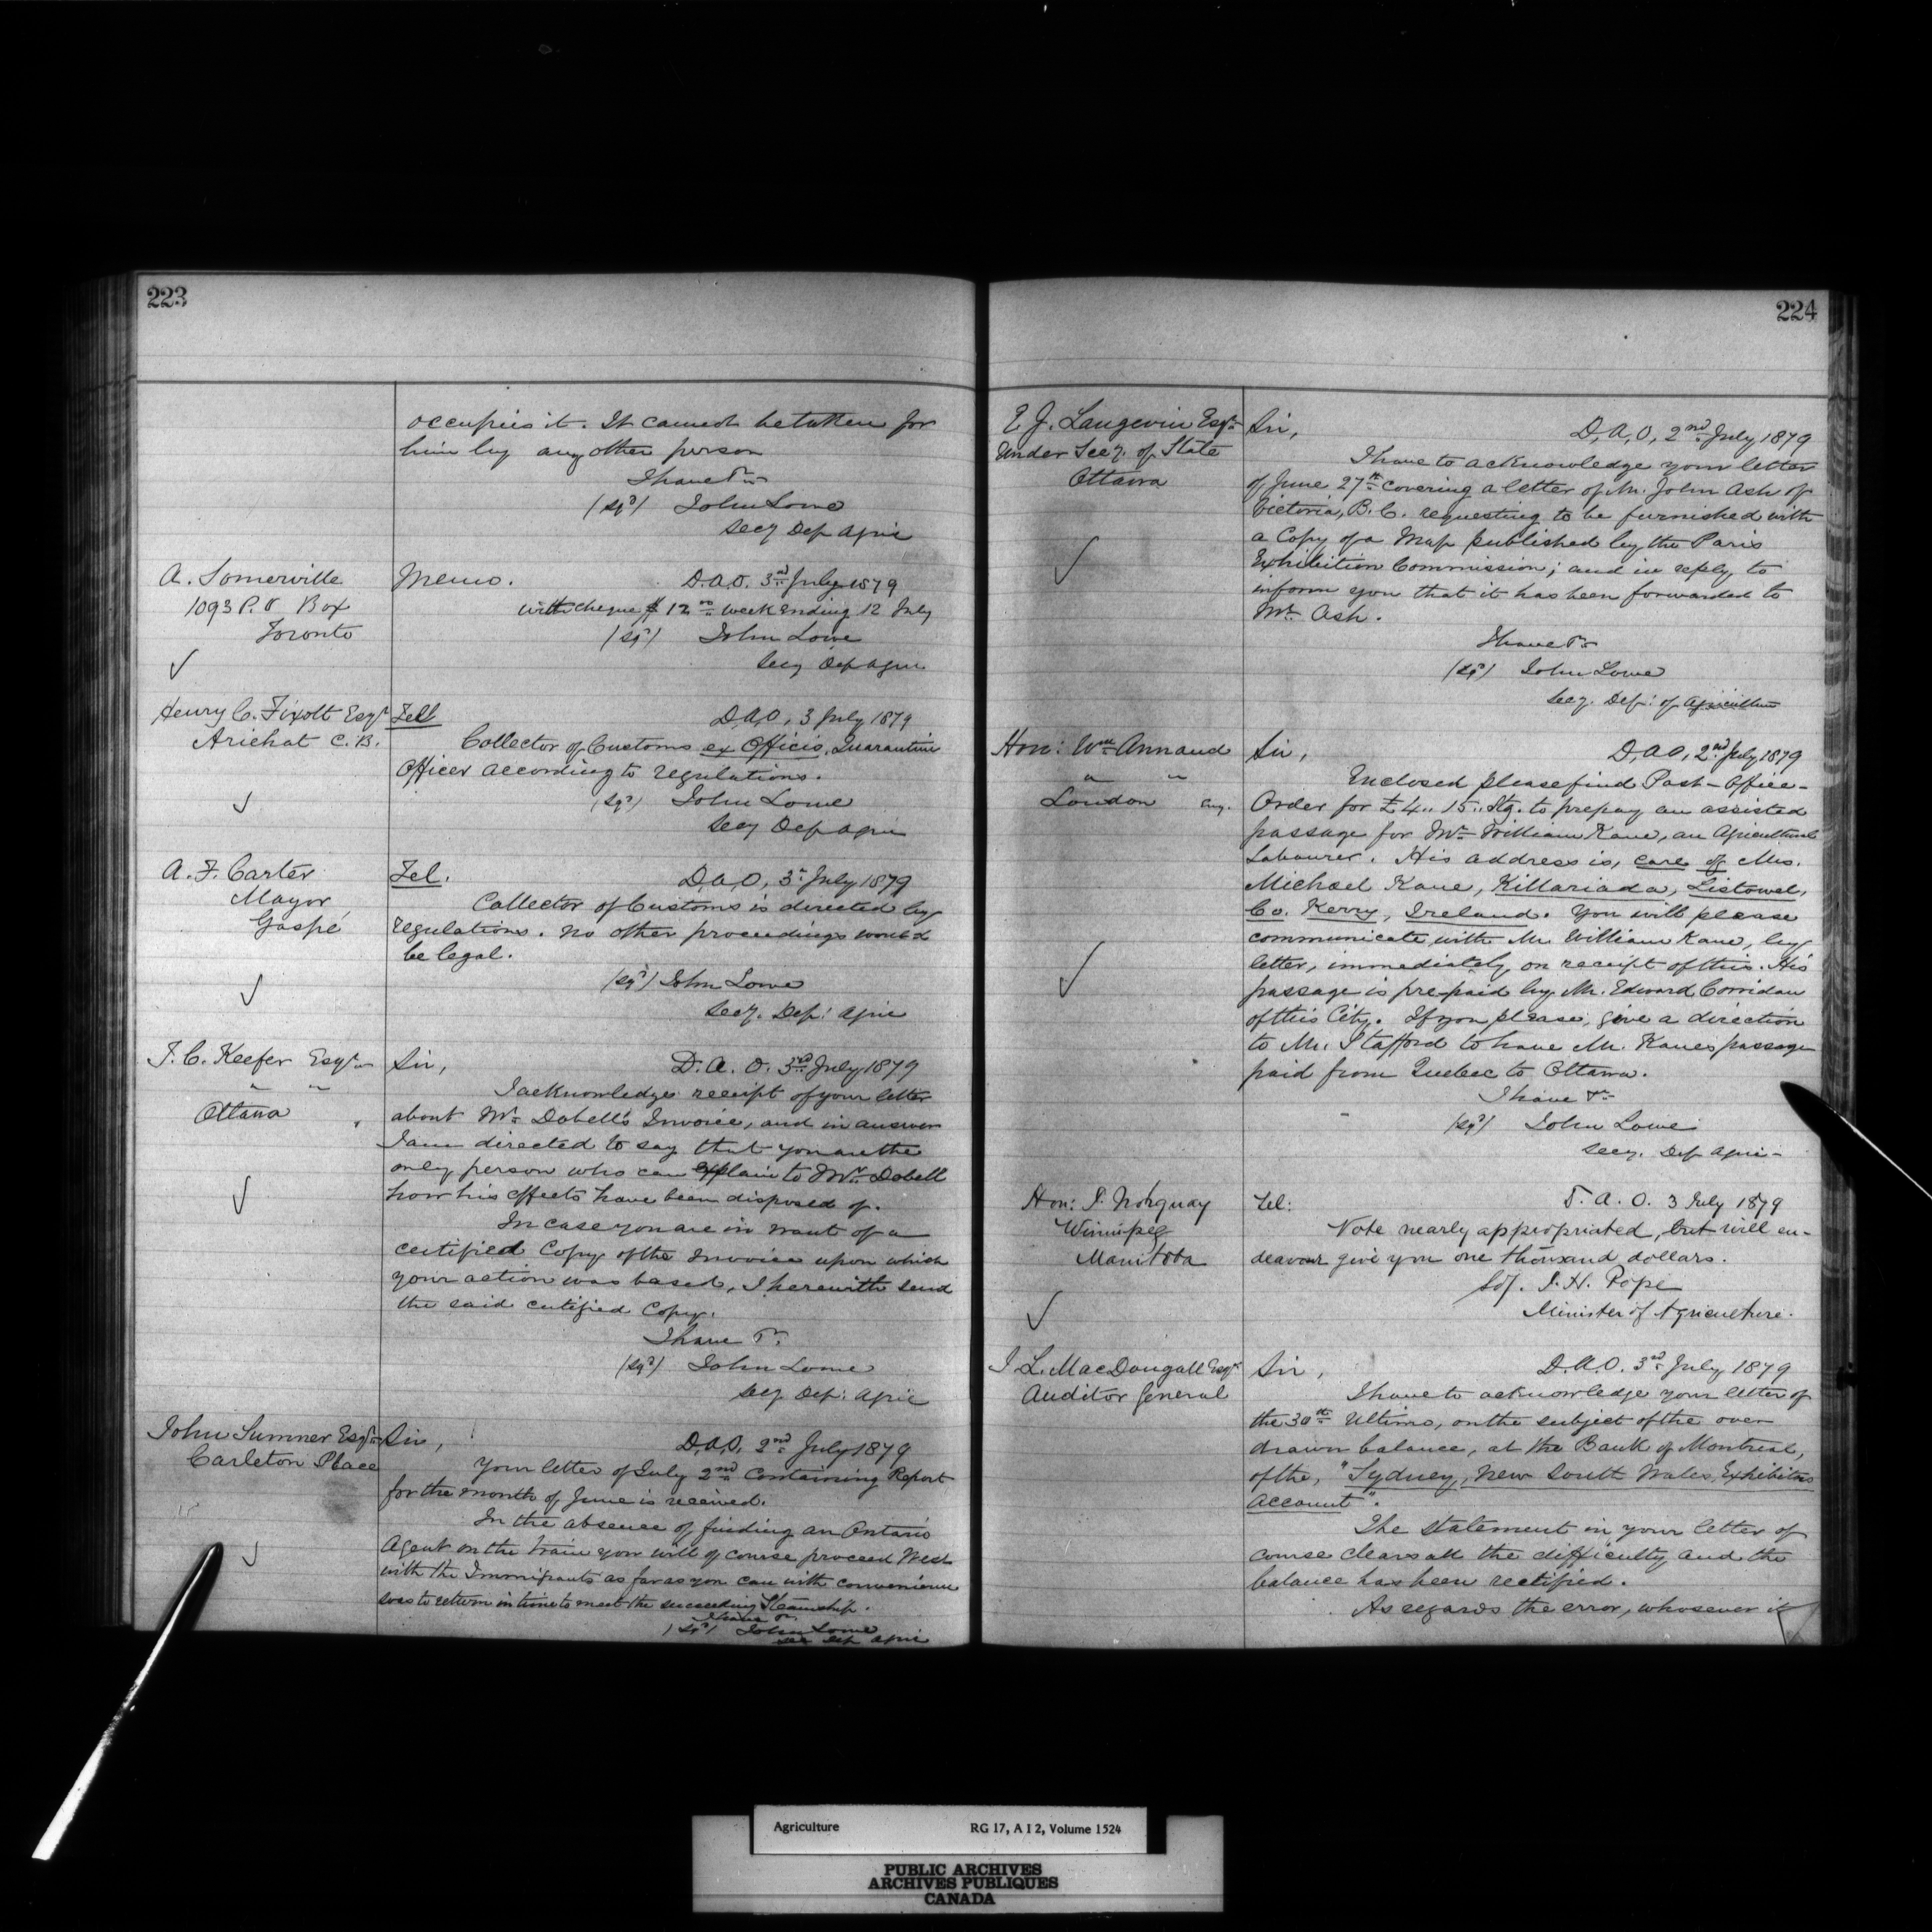 223
occupies it. It cannot be taken for
him by any other person
I have &c
(Sgd) John Lowe
Secy Dep Agric
A. Somerville
1093 P.O Box
Toronto
Memo. D.A.O. 3rd July 1879
with cheque $12 00 week ending 12 July
(Sgd) John Lowe
Secy Dep Agric
Henry C. Fixott Esqr
Arichat C.B.
Tel D.A.O, 3 July 1879
Collector of Customs ex Officio, Quarantine
Officer according to regulations.
(Sgd) John Lowe
Secy Dep Agric
A. F. Carter
Mayor
Gaspé
Tel. D.A.O, 3r July 1879
Collector of Customs is directed by
regulations. No other proceedings would
be legal.
(Sgd) John Lowe
Secy. Dep: Agric
T. C. Keefer Esqre
" "
Ottawa
Sir, D. A. O. 3rd July 1879
I acknowledge receipt of your letter
about Mr. Dobell's Invoice, and in answer
I am directed to say that you are the
only person who can explain to Mr. Dobell
how his effects have been disposed of.
In case you are in want of a
certified Copy of the Invoice upon which
your action was based, I herewith send
the said certified Copy.
I have &c.
(Sgd) John Lowe
Secy. Dep: Agric
John Sumner Esqre
Carleton Place
Sir, D.A.O, 2nd July 1879
Your letter of July 2nd Containing Report
for the month of June is received.
In the absence of finding an Ontario
Agent on the train you will of course proceed West
with the Immigrants as far as you can with convenience
so as to return in time to meet the succeeding Steamship.
I have &c
(Sgd) John Lowe
Sec Dep Agric
224
E J. Langevin Esqre
Under Secy. of State
Ottawa
Sir, D,A,O, 2nd July 1879
I have to acknowledge your letter
of June 27th covering a letter of Mr. John Ash of
Victoria, B.C. requesting to be furnished with
a Copy of a Map published by the Paris
Exhibition Commission; and in reply, to
inform you that it has been forwarded to
Mr. Ash.
I have &c
(Sgd) John Lowe
Secy. Dep: of Agriculture
Hon: Wm Annand
" "
London Eng.
Sir, D,A.O, 2nd July 1879
Enclosed please find Post-Office-
Order for £4,, 15,, Stg. to prepay an assisted
passage for Mr. William Kane, an Agricultural
Labourer. His address is, care of Mrs.
Michael Kane, Killariada, Listowel,
Co. Kerry, Ireland. You will please
communicate with Mr. William Kane, by
letter, immediately on receipt of this. His
passage is pre-paid by Mr. Edward Corridan
of this City. If you please, give a direction
to Mr. Stafford to have Mr. Kanes passage
paid from Quebec to Ottawa.
I have &c
(Sgd) John Lowe
Secy. Dep Agric-
Hon: J. Norquay
Winnipeg
Manitoba
Tel: D. A. O. 3 July 1879
Vote nearly appropriated, but will en-
deavour give you one thousand dollars.
Sd/. J. H. Pope
Minister of Agriculture.
J L. MacDougall Esqr
Auditor General
Sir, D.A.O. 3rd July 1879
I have to acknowledge your letter of
the 30th Ultimo, on the subject of the over
drawn balance, at the Bank of Montreal,
of the, "Sydney, New South Wales, Exhibition
Account".
The statement in your letter of
course clears all the difficulty, and the
balance has been rectified.
As regards the error, whosever it
Agriculture RG 17, A I 2, Volume 1524
PUBLIC ARCHIVES
ARCHIVES PUBLIQUES
CANADA